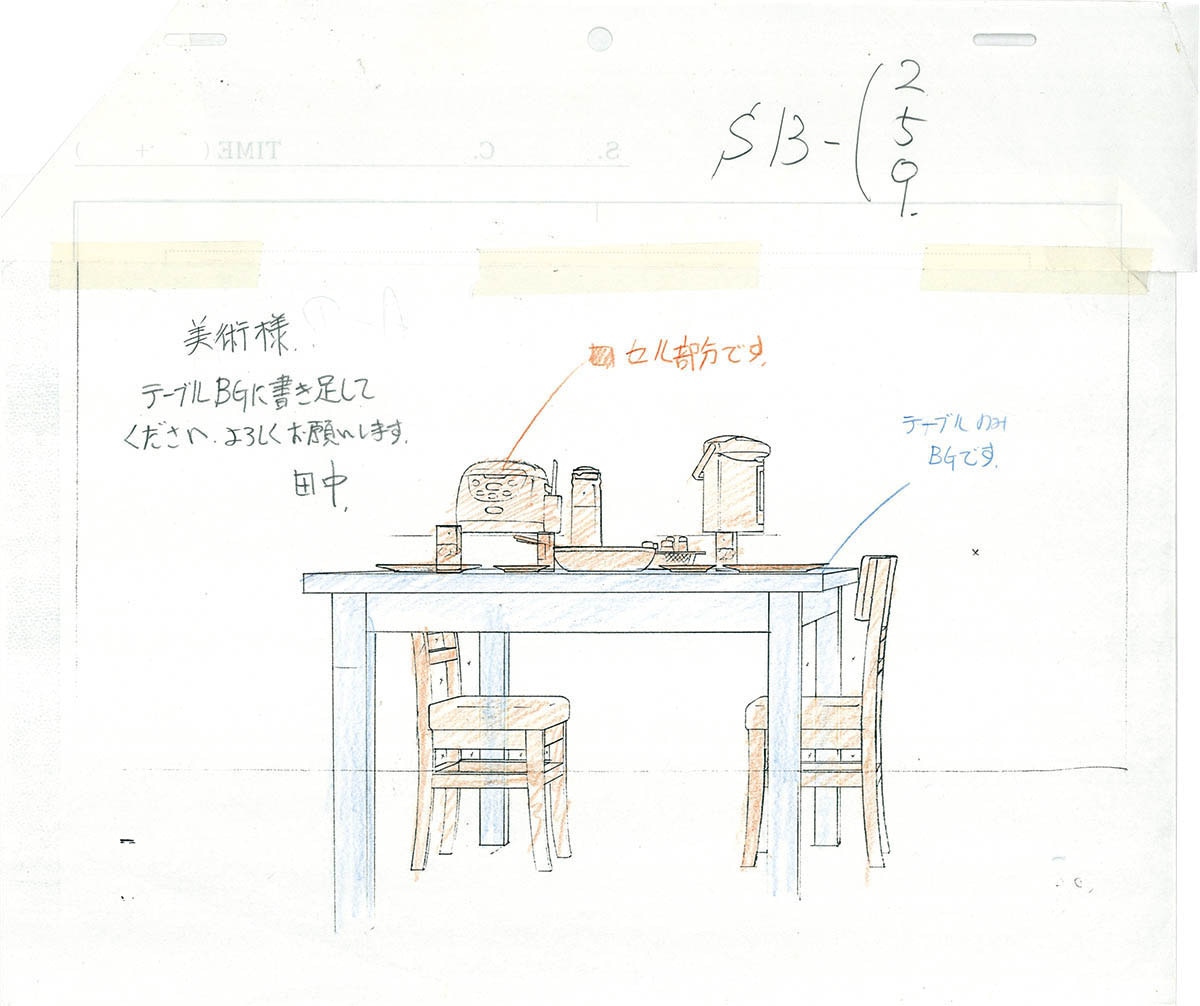 S13-(2
5
9.
S. C. TIME ( + )
美術様.
テーブルBGに書き足して
ください.よろしくお願いします.
田中.
セル部分です.
テーブルのみ
BGです.